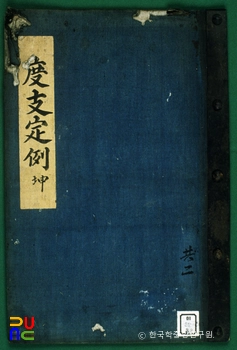 度支定例 坤
共二
© 한국학중앙연구원.